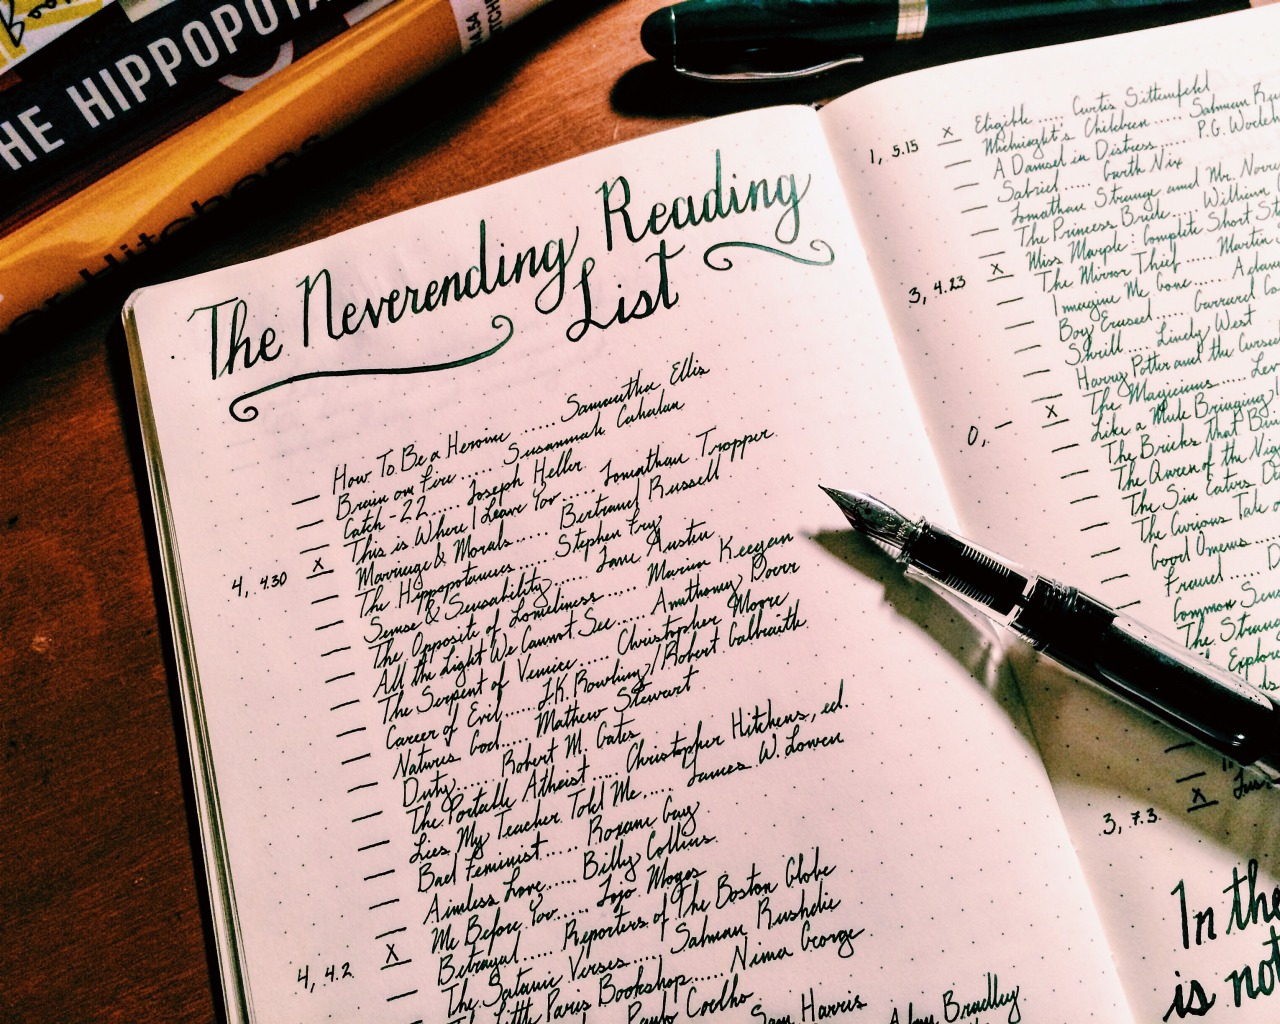 THE HIPPOPOTA
The Neverending Reading
List
How To Be a Heroine ...... Samantha Ellis
Brain on Fire ...... Susannah Cahalan
Catch-22 ..... Joseph Heller
This is Where I Leave You ..... Jonathan Tropper
4, 4.30 X Marriage & Morals ..... Bertrand Russell
The Hippopotamus ..... Stephen Fry
Sense & Sensability ...... Jane Austin
The Opposite of Loneliness ...... Marina Keegan
All the Light We Cannot See ..... Annthoney Doerr
The Serpent of Venice ..... Christopher Moore
Career of Evil ...... J.K. Rowling/Robert Galbraith
Natures God ..... Mathew Stewart
Duty ..... Robert M. Gates
The Portable Atheist .... Christopher Hitchens, ed.
Lies My Teacher Told Me ..... James W. Lowen
Bad Feminist ..... Roxane Gay
Aimless Love ..... Billy Collins
4, 4.2 X Me Before You ..... Jojo Moyes
Betrayal ..... Reporters of The Boston Globe
The Satanic Verses ..... Salman Rushdie
Little Paris Bookshop ..... Nina George
Paulo Coelho
Sam Harris
Alan Bradley
1, 5.15 X Eligible ..... Curtis Sittenfeld
Midnight's Children ..... Salman
A Damsel in Distress ..... P.G.
Sabriel ..... Garth Nix
Jonathan Strange and Mr.
The Princess Bride .... William
Miss Marple: Complete Short
3, 4.23 X The Mirror Thief ..... Martin
Imagine Me Gone ..... Adam
Boy Erased ..... Garrard
Shrill ..... Lindy West
Harry Potter and the
The Magicians ..... Lev
0, - X Like a Mule Bringing
The Bricks that
The Queen of the
The Sin Eaters
The Curious Tale
Good Omens
Freud
Common
The
3, 7.3 X
In the
is not